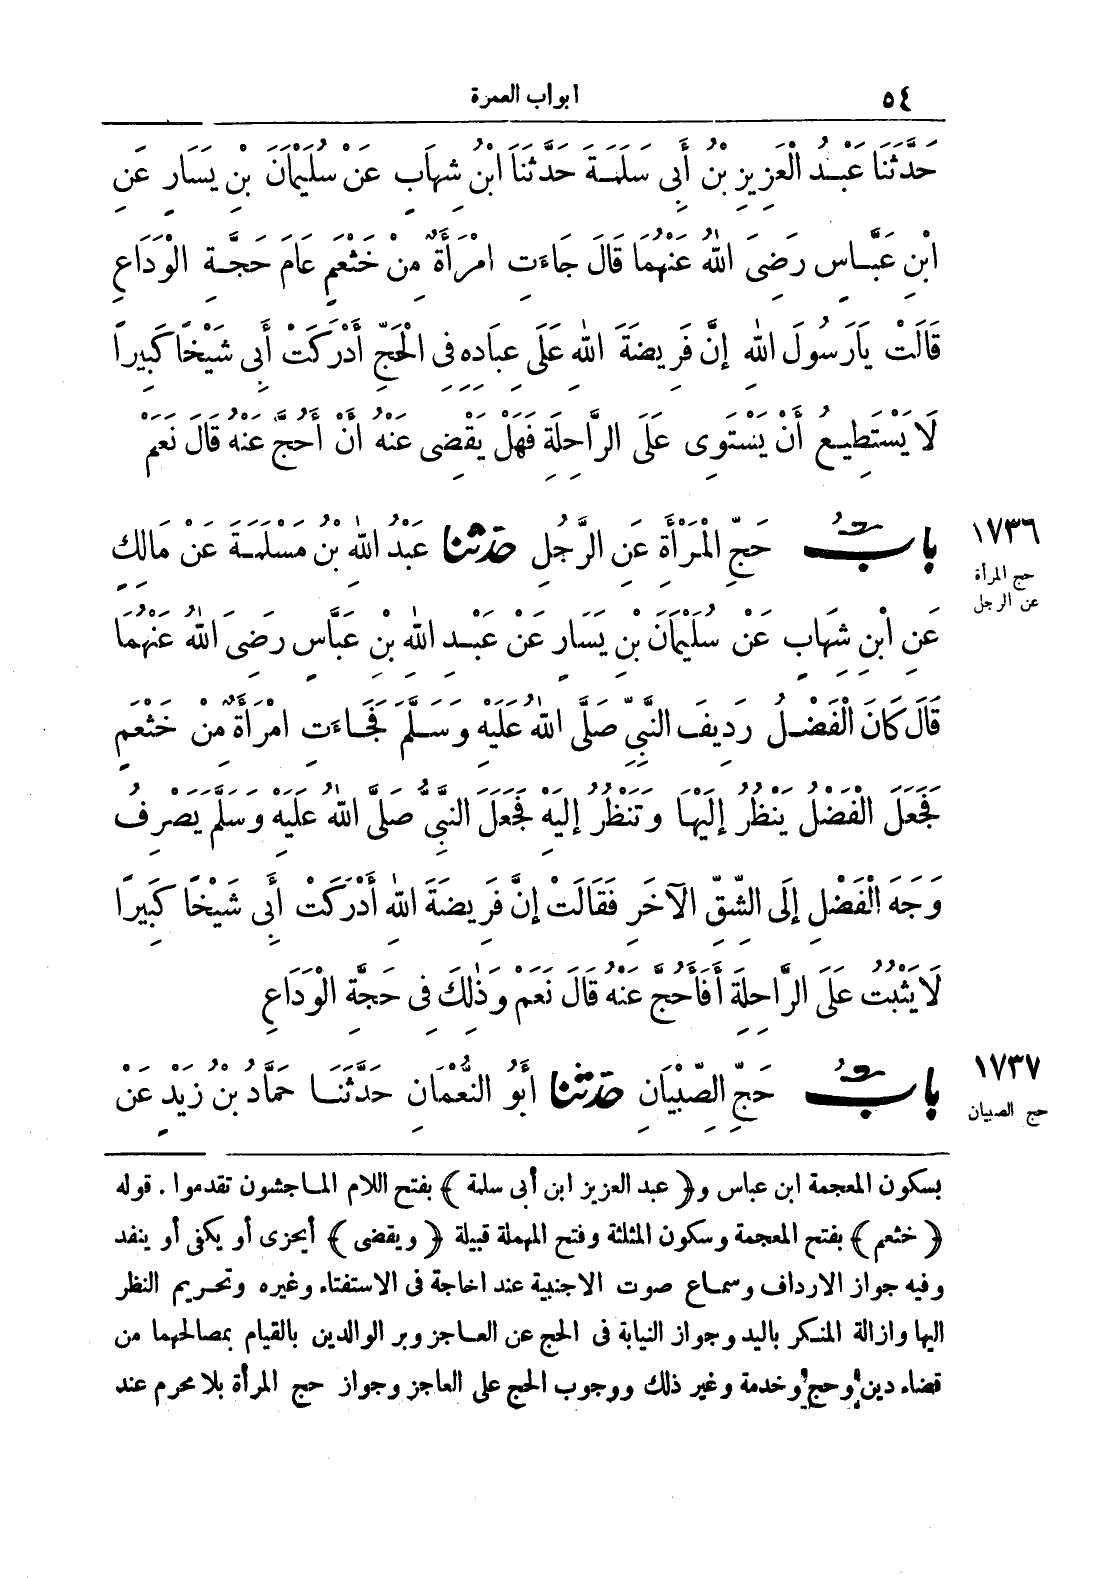 ٥٤ ابواب العمرة
حَدَّثَنَا عَبْدُ الْعَزِيزِ بْنُ أَبِى سَلَمَةَ حَدَّثَنَا ابْنُ شِهَابٍ عَنْ سُلَيْمَانَ بْنِ يَسَارٍ عَنِ
ابْنِ عَبَّاسٍ رَضِىَ اللهُ عَنْهُمَا قَالَ جَاءَتِ امْرَأَةٌ مِنْ خَثْعَمٍ عَامَ حَجَّةِ الْوَدَاعِ
قَالَتْ يَارَسُولَ اللهِ إِنَّ فَرِيضَةَ اللهِ عَلَى عِبَادِهِ فِى الْحَجِّ أَدْرَكَتْ أَبِى شَيْخًا كَبِيرًا
لَا يَسْتَطِيعُ أَنْ يَسْتَوِى عَلَى الرَّاحِلَةِ فَهَلْ يَقْضِى عَنْهُ أَنْ أَحُجَّ عَنْهُ قَالَ نَعَمْ
١٧٣٦ حج المرأة عن الرجل
بابُ حَجِّ الْمَرْأَةِ عَنِ الرَّجُلِ حَدَّثَنَا عَبْدُ اللهِ بْنُ مَسْلَمَةَ عَنْ مَالِكٍ
عَنِ ابْنِ شِهَابٍ عَنْ سُلَيْمَانَ بْنِ يَسَارٍ عَنْ عَبْدِ اللهِ بْنِ عَبَّاسٍ رَضِىَ اللهُ عَنْهُمَا
قَالَ كَانَ الْفَضْلُ رَدِيفَ النَّبِىِّ صَلَّى اللهُ عَلَيْهِ وَسَلَّمَ فَجَاءَتِ امْرَأَةٌ مِنْ خَثْعَمٍ
فَجَعَلَ الْفَضْلُ يَنْظُرُ إِلَيْهَا وَتَنْظُرُ إِلَيْهِ فَجَعَلَ النَّبِىُّ صَلَّى اللهُ عَلَيْهِ وَسَلَّمَ يَصْرِفُ
وَجْهَ الْفَضْلِ إِلَى الشِّقِّ الْآخَرِ فَقَالَتْ إِنَّ فَرِيضَةَ اللهِ أَدْرَكَتْ أَبِى شَيْخًا كَبِيرًا
لَا يَثْبُتُ عَلَى الرَّاحِلَةِ أَفَأَحُجُّ عَنْهُ قَالَ نَعَمْ وَذَلِكَ فِى حَجَّةِ الْوَدَاعِ
١٧٣٧ حج الصبيان
بابُ حَجِّ الصِّبْيَانِ حَدَّثَنَا أَبُو النُّعْمَانِ حَدَّثَنَا حَمَّادُ بْنُ زَيْدٍ عَنْ
بسكون المعجمة ابن عباس و﴿ عبد العزيز ابن أبى سلمة ﴾ بفتح اللام الماجشون تقدموا . قوله
﴿ خثعم ﴾ بفتح المعجمة وسكون المثلثة وفتح المهملة قبيلة ﴿ ويقضى ﴾ أيجزى أو يكفى أو ينفد
وفيه جواز الارداف وسماع صوت الاجنبية عند اخاجة فى الاستفتاء وغيره وتحريم النظر
اليها وازالة المنكر باليد وجواز النيابة فى الحج عن العاجز وبر الوالدين بالقيام بمصالحهما من
قضاء دين وحج وخدمة وغير ذلك ووجوب الحج على العاجز وجواز حج المرأة بلا محرم عند